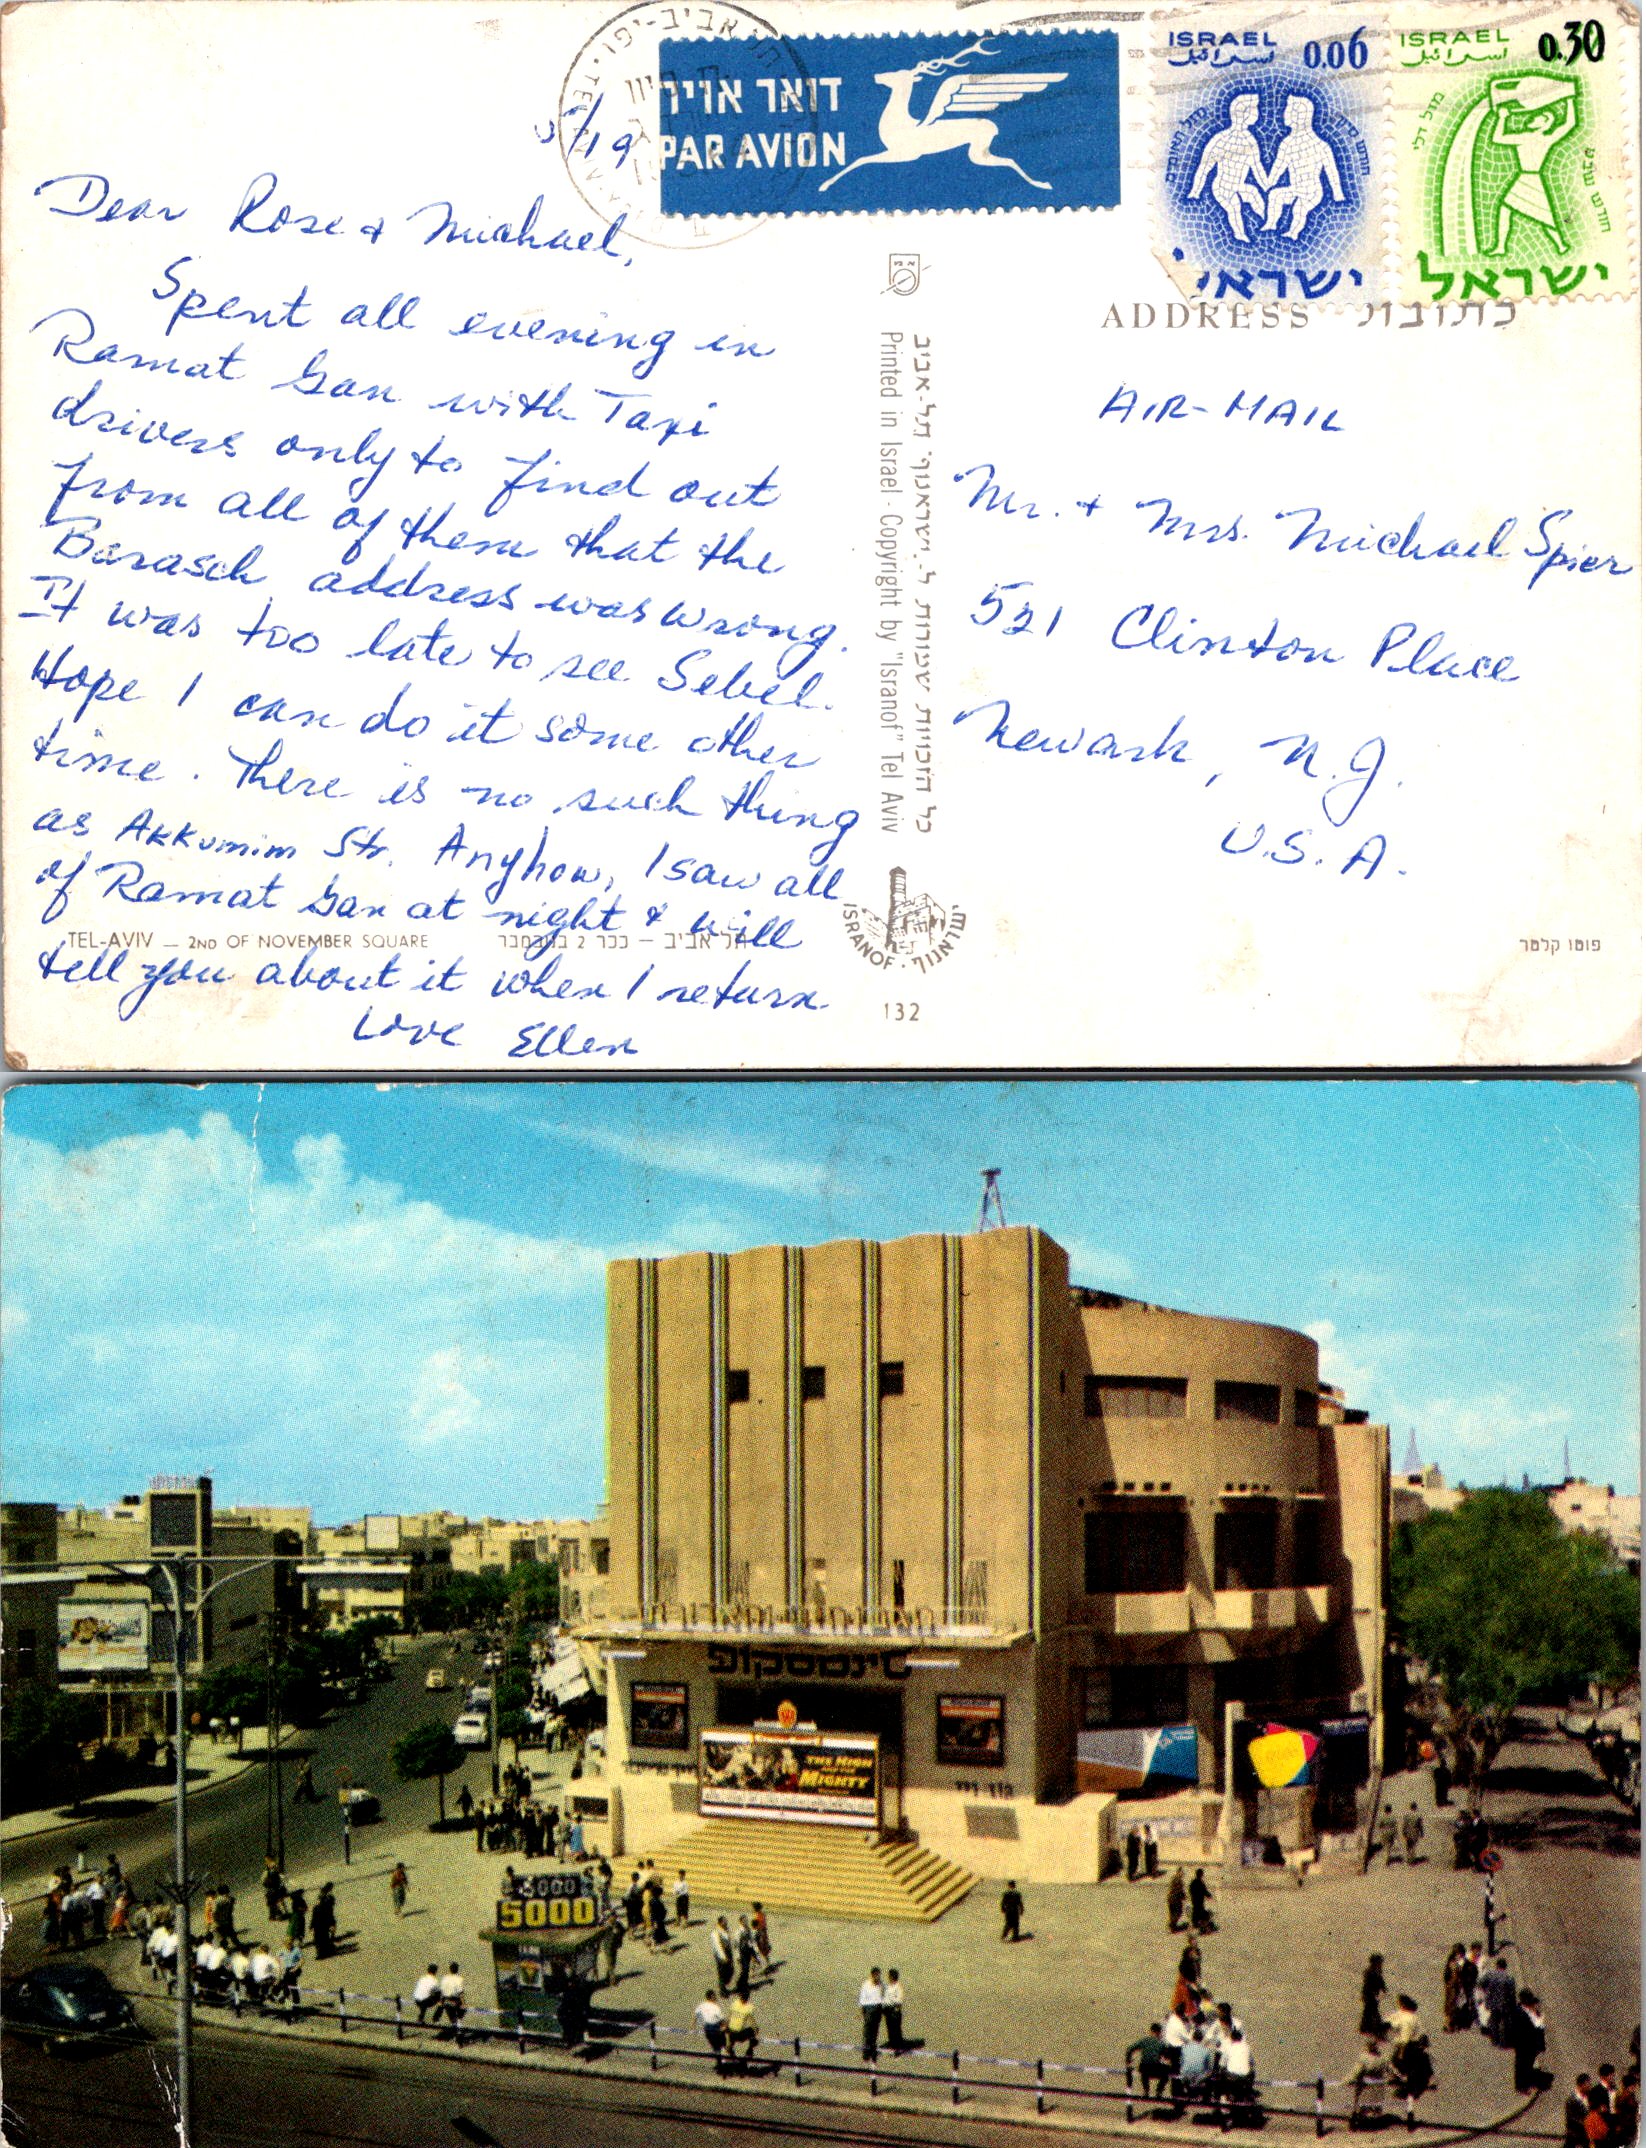 תל-אביב-יפו
דואר אויר
PAR AVION
ISRAEL 0.06
اسرائيل
מזל תאומים
חודש סיון
ישראל
ISRAEL 0.30
اسرائيل
מזל דלי
חודש שבט
ישראל
5/19
Dear Rose & Michael,
Spent all evening in
Ramat Gan with Taxi
drivers only to find out
from all of them that the
Barasch address was wrong.
It was too late to see Sebel.
Hope I can do it some other
time. There is no such thing
as Akkumim Str. Anyhow, I saw all
of Ramat Gan at night & will
tell you about it when I return
Love Ellen
TEL-AVIV — 2ND OF NOVEMBER SQUARE
תל אביב — ככר 2 בנובמבר
כל הזכויות שמורות ל„ישראנוף" תל-אביב
Printed in Israel · Copyright by "Isranof" Tel Aviv
ISRANOF · ישראנוף
132
ADDRESS כתובת
AIR-MAIL
Mr. + Mrs. Michael Spier
521 Clinton Place
Newark, N.J.
U.S.A.
פוטו קלטר
סינמסקופ
THE HIGH
MIGHTY
5000
5000